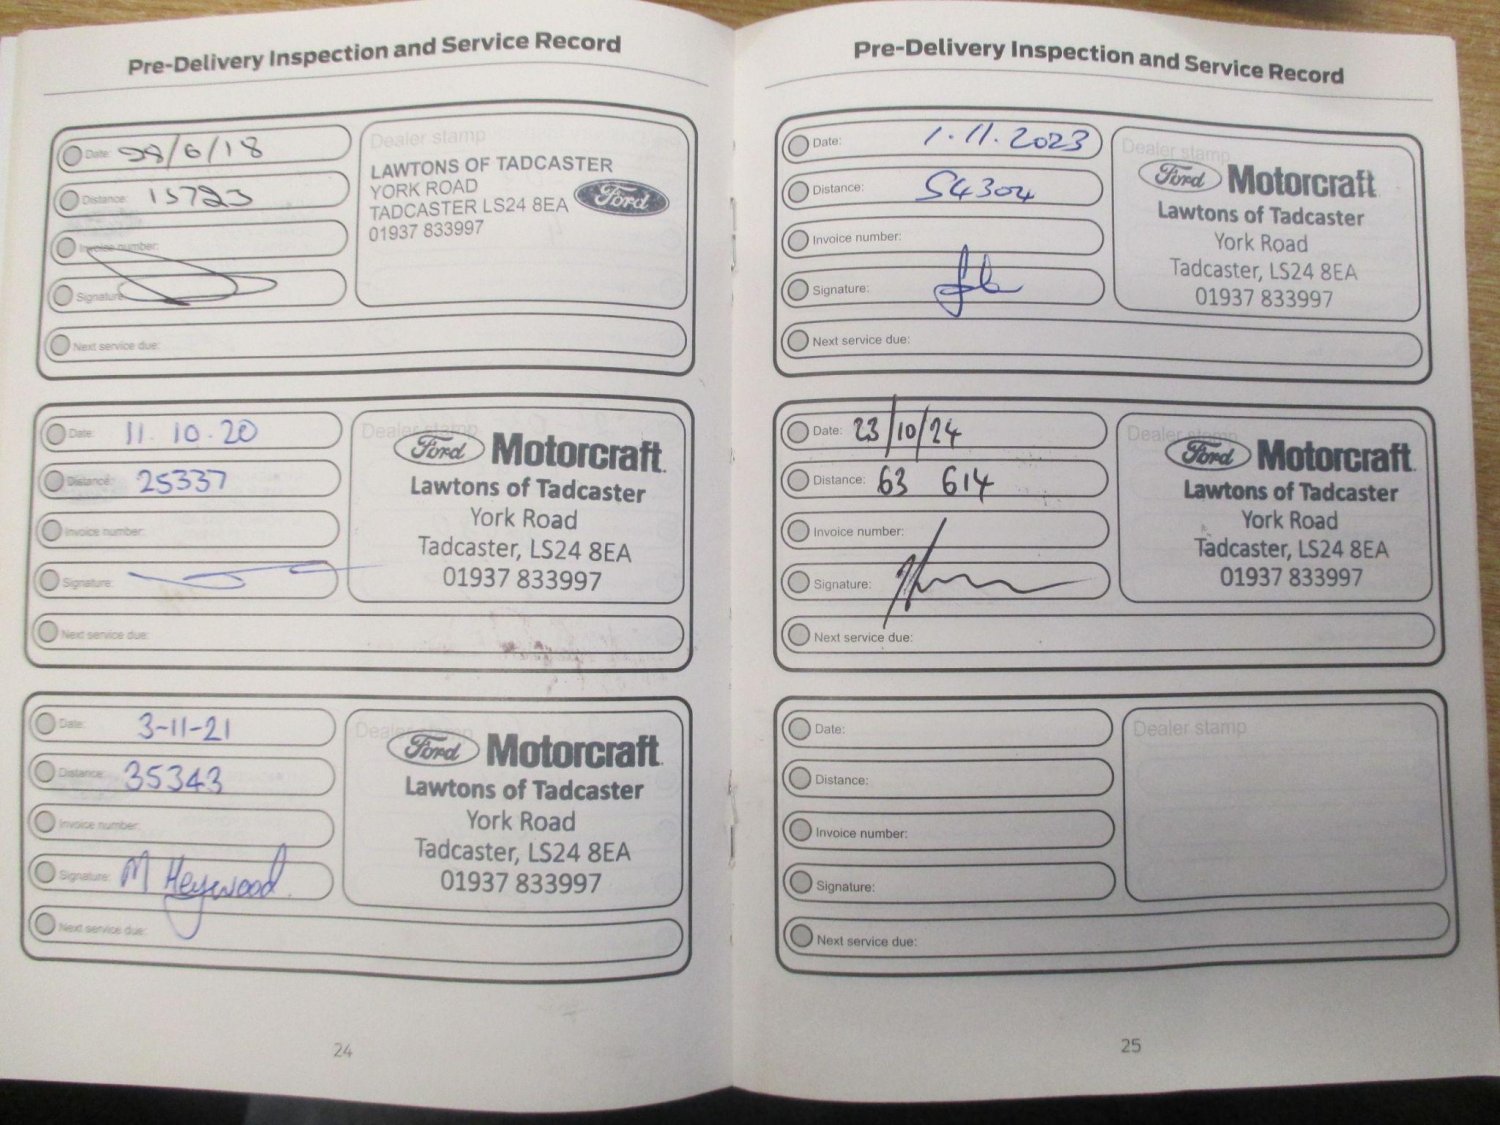 Pre-Delivery Inspection and Service Record
Date: 28/6/18
Distance: 15723
Invoice number:
Signature:
Next service due:
Dealer stamp
LAWTONS OF TADCASTER
YORK ROAD
TADCASTER LS24 8EA
01937 833997
Ford
Date: 11.10.20
Distance: 25337
Invoice number:
Signature:
Next service due:
Dealer stamp
Ford Motorcraft
Lawtons of Tadcaster
York Road
Tadcaster, LS24 8EA
01937 833997
Date: 3-11-21
Distance: 35343
Invoice number:
Signature: M Heywood
Next service due:
Dealer stamp
Ford Motorcraft
Lawtons of Tadcaster
York Road
Tadcaster, LS24 8EA
01937 833997
24
Pre-Delivery Inspection and Service Record
Date: 1.11.2023
Distance: 54304
Invoice number:
Signature:
Next service due:
Dealer stamp
Ford Motorcraft
Lawtons of Tadcaster
York Road
Tadcaster, LS24 8EA
01937 833997
Date: 23/10/24
Distance: 63 614
Invoice number:
Signature:
Next service due:
Dealer stamp
Ford Motorcraft
Lawtons of Tadcaster
York Road
Tadcaster, LS24 8EA
01937 833997
Date:
Distance:
Invoice number:
Signature:
Next service due:
Dealer stamp
25